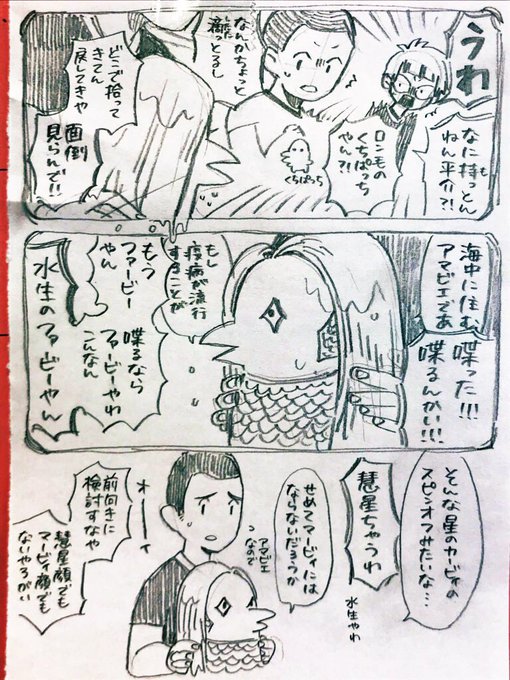 うわ
なに持っとん
ねん平介?!
ロン毛の
くちぱっち
やん?!
くちぱっち
なんかちょっと
濡っとるし
どこで拾って
きてん
戻してきや
面倒
見らんで!!
海中に住む
アマビエであ
喋った!!!
喋るんかい!!!
もし
疫病が流行
することが
もう
ファービー
やん
喋るなら
ファービーやわ
こんなん
水生のファービーやん
そんな星のカービィの
スピンオフみたいな…
彗星ちゃうわ
水生やわ
せめてマービィには
ならないだろうか
アマビエ
なので
オーイ
前向きに
検討すなや
彗星顔でも
マービィ顔でも
ないやろがい